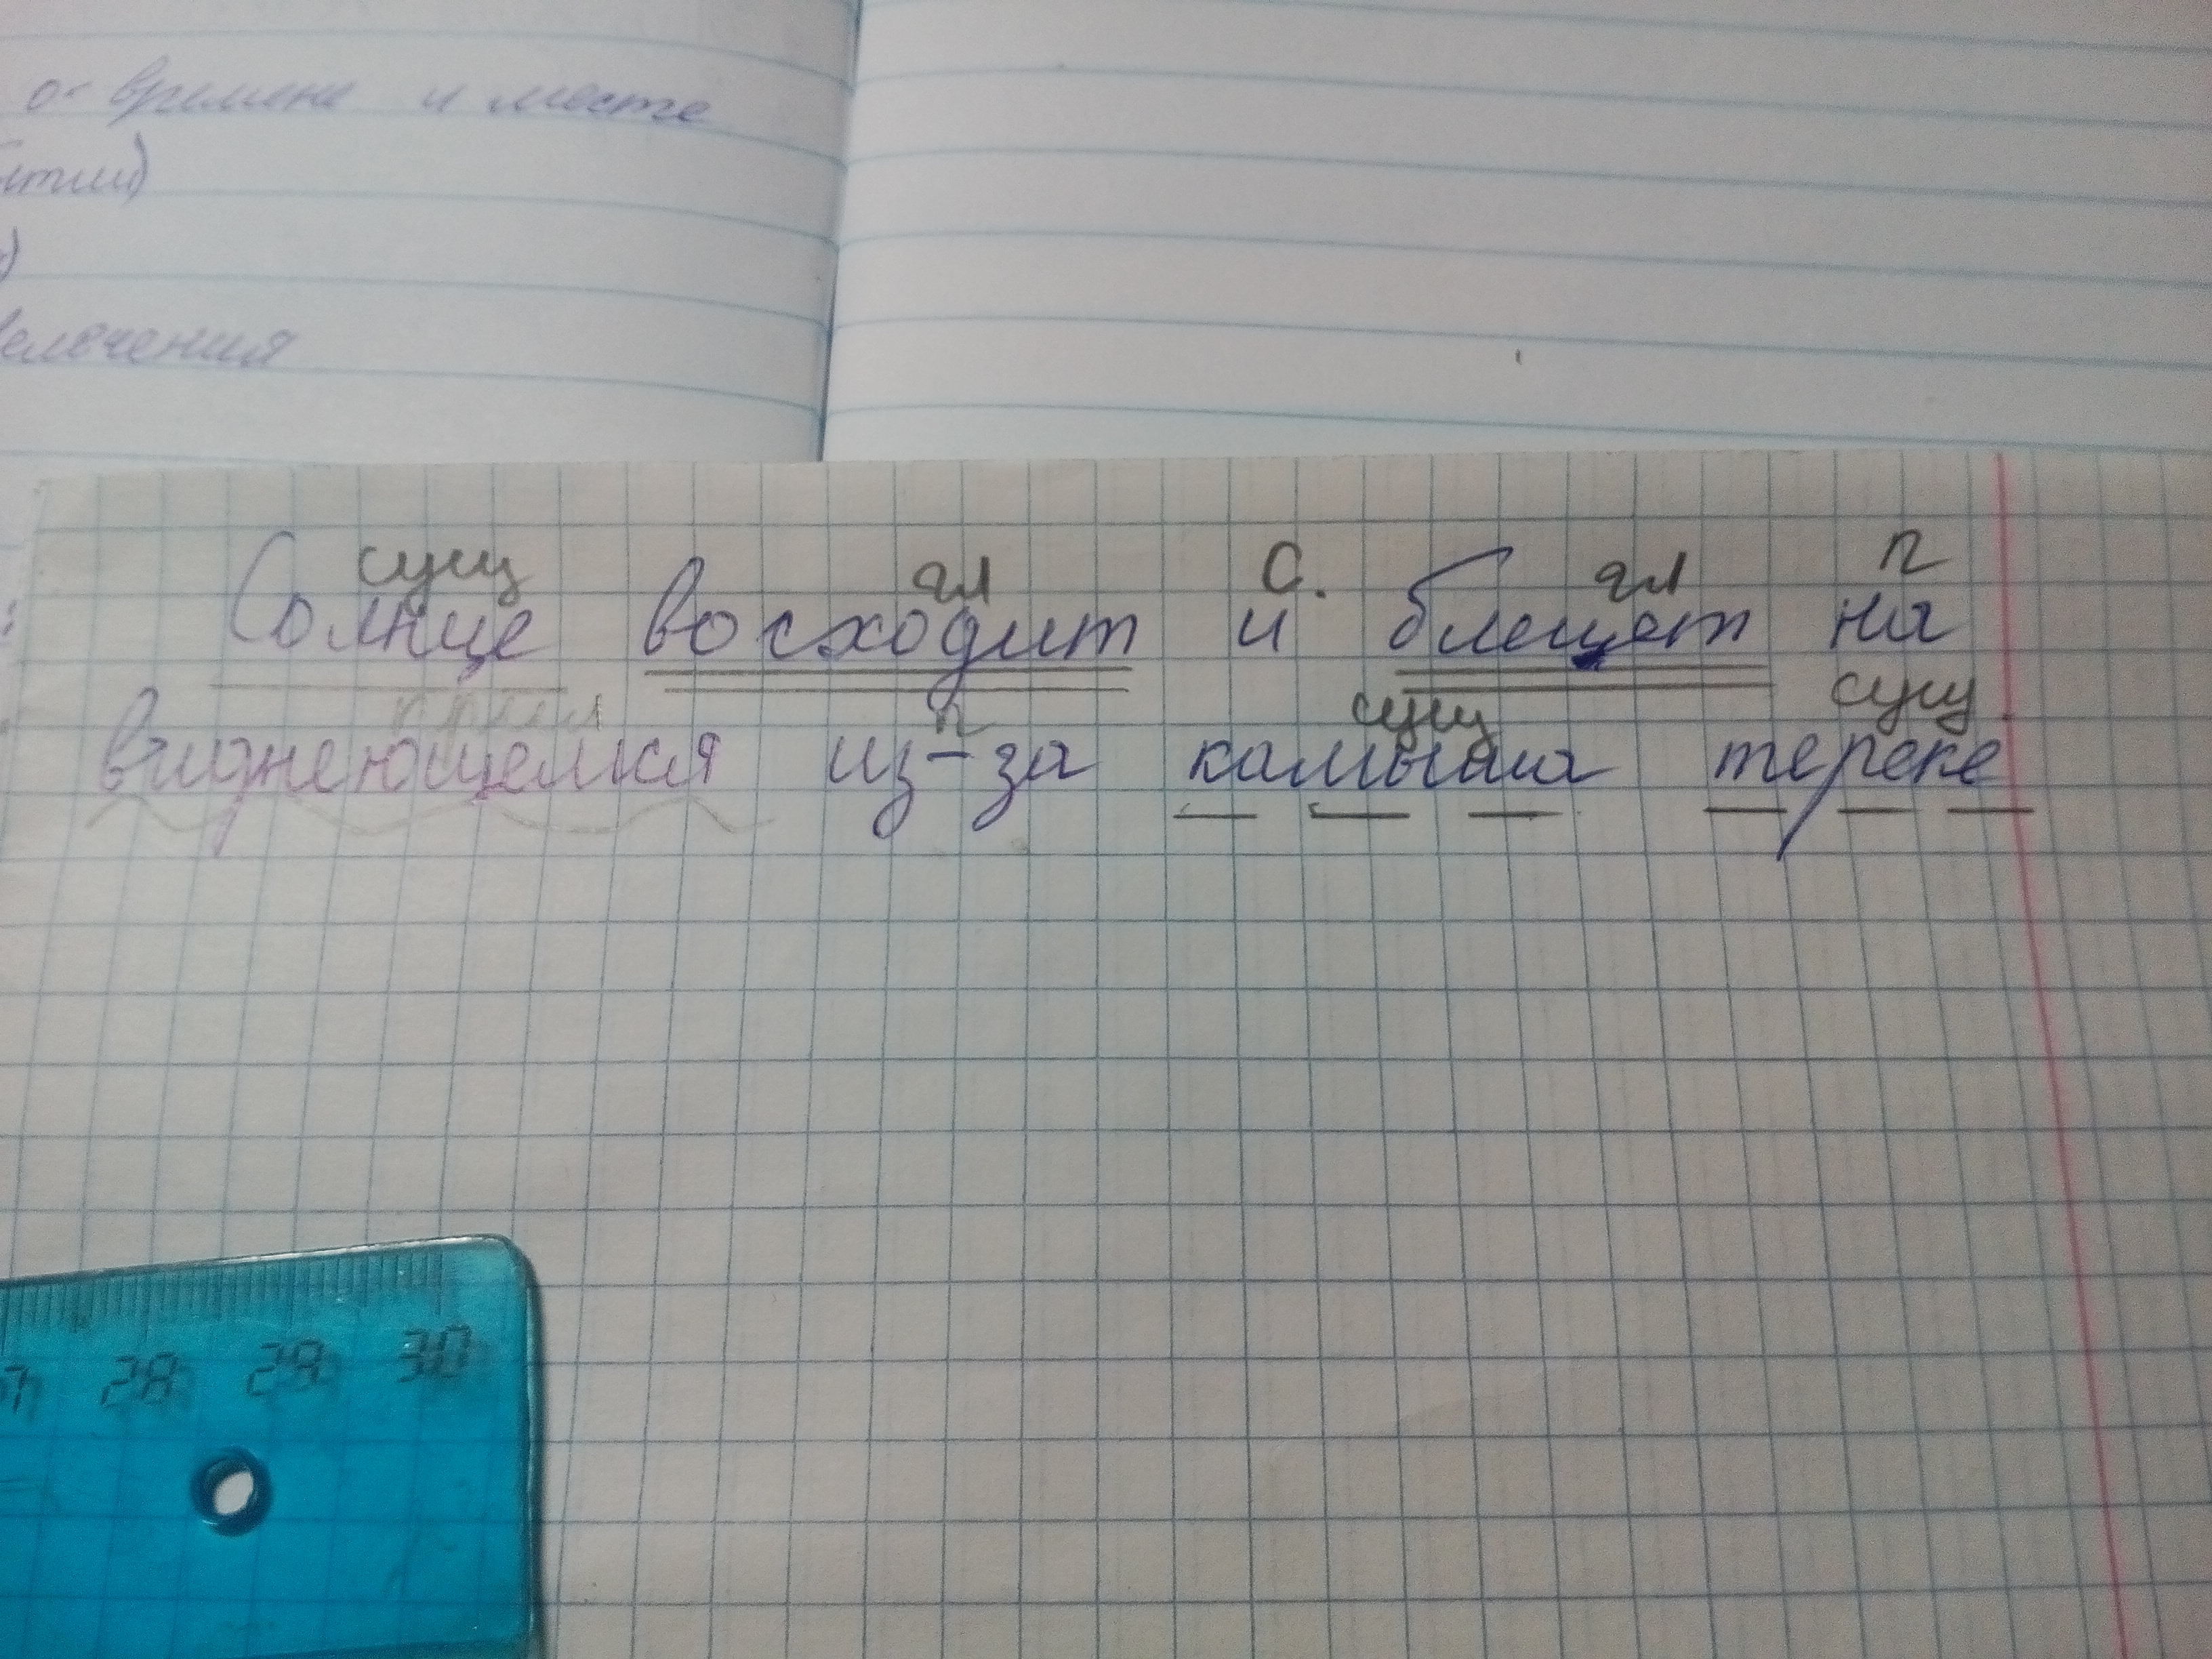 времене и месте
сущ гл с. гл п
Солнце восходит и блещет на
прил п сущ сущ.
виднеющемся из-за камыша тереке
28 29 30